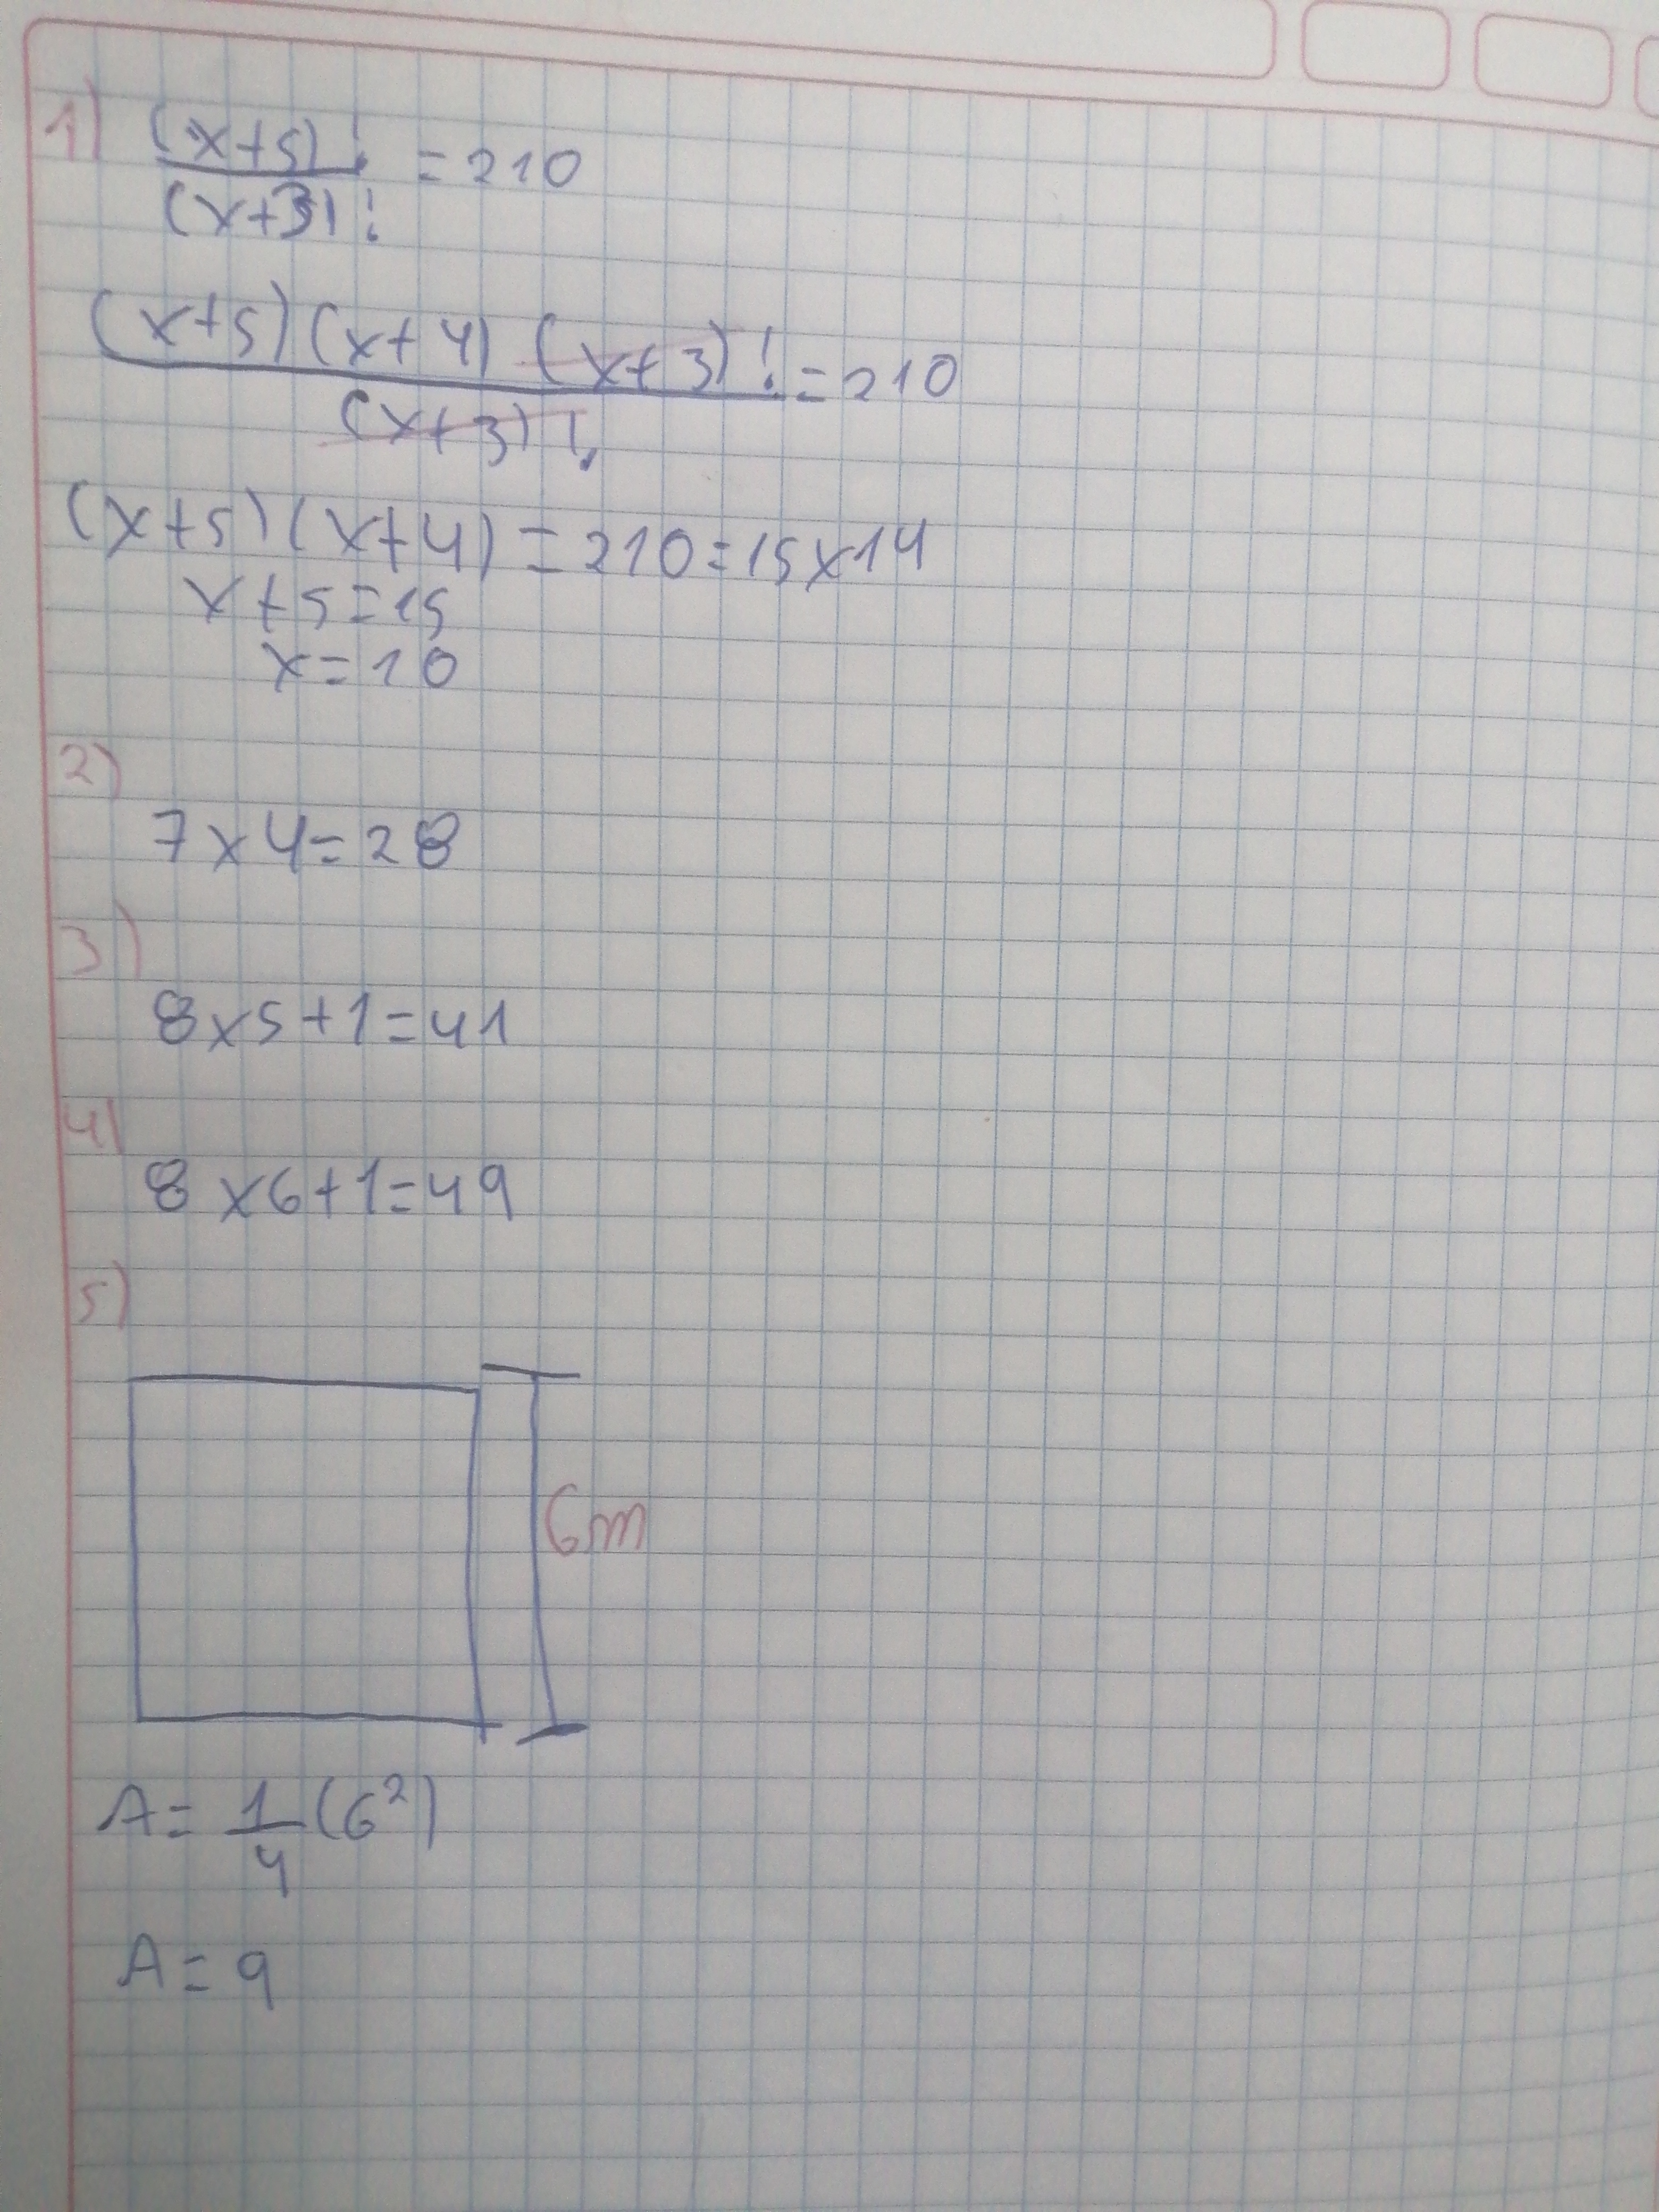 1) (x+5)! / (x+3)! = 210
(x+5)(x+4)(x+3)! / (x+3)! = 210
(x+5)(x+4) = 210 = 15x14
x+5=15
x=10
2)
7x4=28
3)
8x5+1=41
4)
8x6+1=49
5)
6m
A= 1/4 (6²)
A= 9